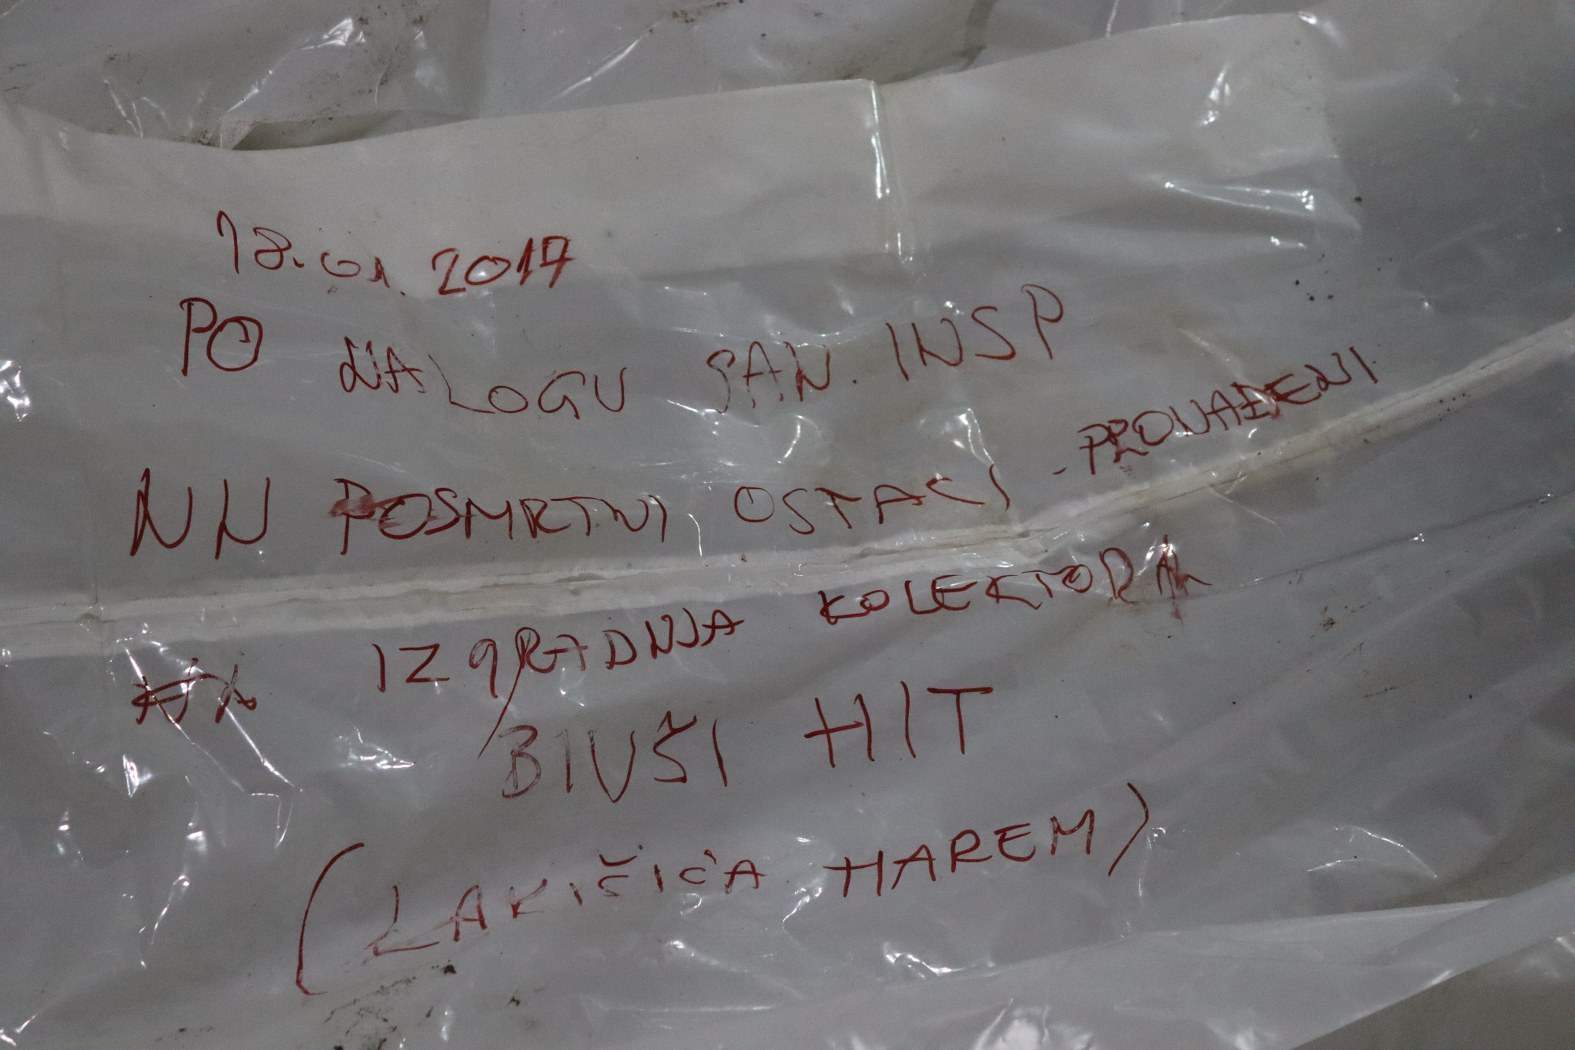 18.01.2017
PO NALOGU SAN. INSP
NN POSMRTNI OSTACI - PRONAĐENI
IZGRADNJA KOLEKTORA
BIVŠI HIT
(LAKIŠIĆA HAREM)